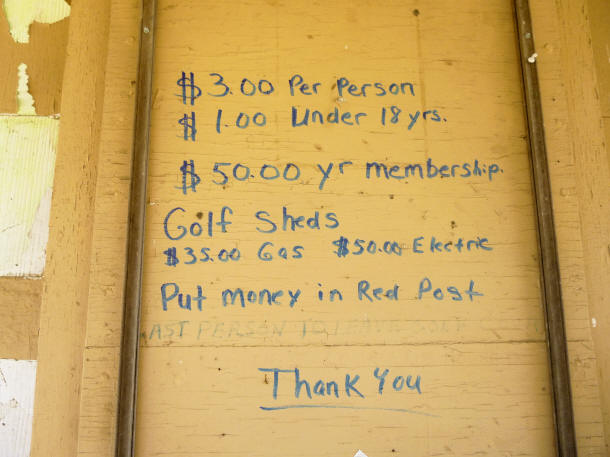 $3.00 Per Person
$1.00 Under 18 yrs.
$50.00 yr membership.
Golf Sheds
$35.00 Gas $50.00 Electric
Put money in Red Post
AST PERSON TO LEAVE
Thank You